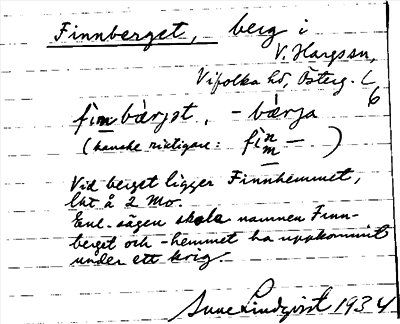 Finnberget, berg i
V. Hargs sn,
Vifolka hd, Österg. L
6
fìm̲bærjət, -bærja
(kanske riktigare: fìn̲m̲ — )
Vid berget ligger Finnhemmet,
lht. å 2 Mo.
Enl. sägen skola namnen Finn-
berget och -hemmet ha uppkommit
under ett krig.
Sune Lindqvist 1934